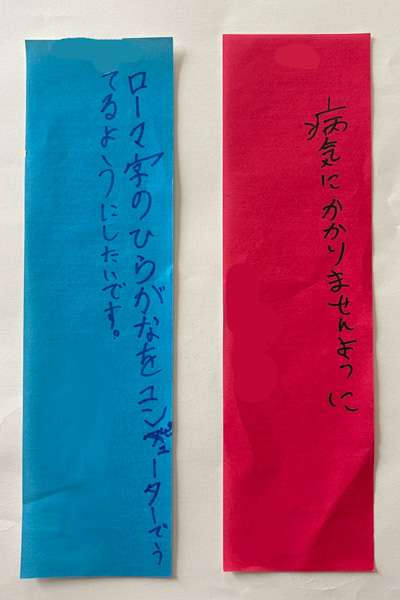 病気にかかりませんように
ローマ字のひらがなをコンピューターでう
てるようにしたいです。